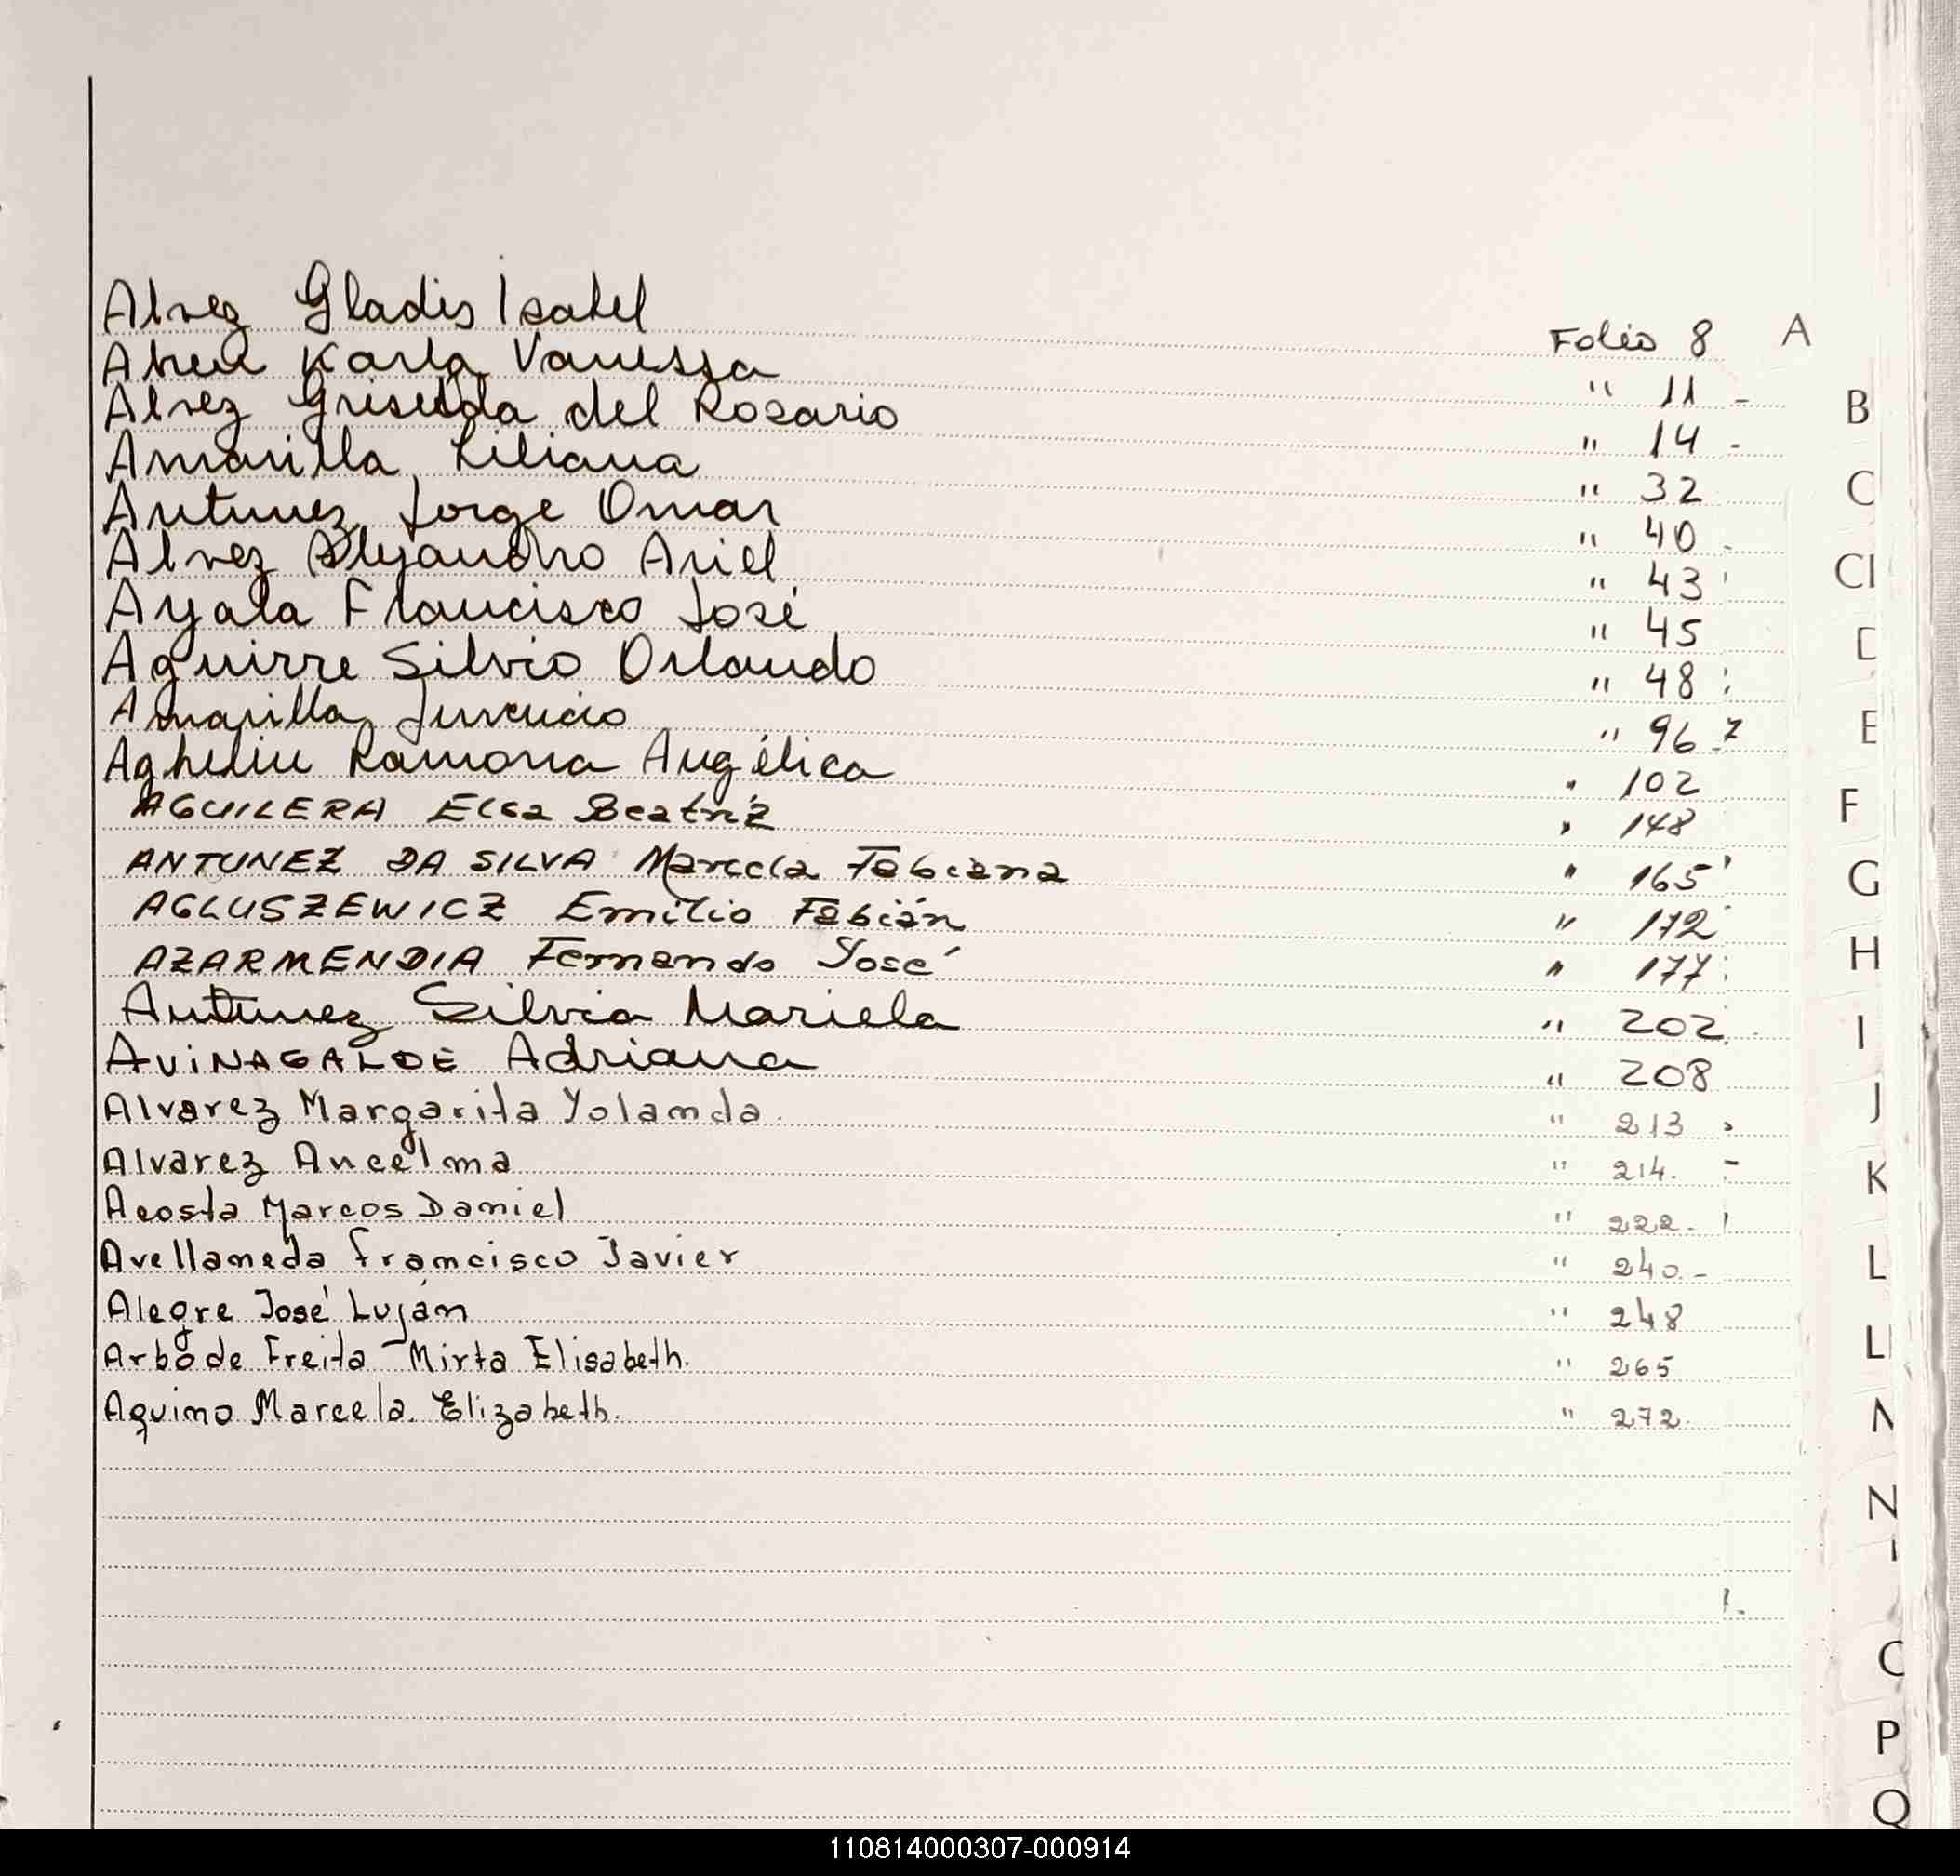 Alvez Gladis Isabel Folio 8 A
Abreu Karla Vanessa " 11 -
Alvez Griselda del Rosario " 14 -
Amarilla Liliana " 32
Antunez Jorge Omar " 40
Alvez Alejandro Ariel " 43
Ayala Francisco José " 45
Aguirre Silvio Orlando " 48
Amarilla Juvencio " 96
Aghelin Ramona Angélica " 102
AGUILERA Elsa Beatriz " 148
ANTUNEZ DA SILVA Marcela Fabiana " 165
AGLUSZEWICZ Emilio Fabián " 172
AZARMENDIA Fernando José " 177
Antunez Silvia Mariela " 202
AVINAGALDE Adriana " 208
Alvarez Margarita Yolanda " 213
Alvarez Ancelma " 214. -
Acosta Marcos Daniel " 222.
Avellaneda Francisco Javier " 240.-
Alegre José Luján " 248
Arbo de Freita Mirta Elisabeth. " 265
Aquino Marcela Elizabeth. " 272.
B
C
F
G
H
I
J
K
L
N
P
Q
110814000307-000914